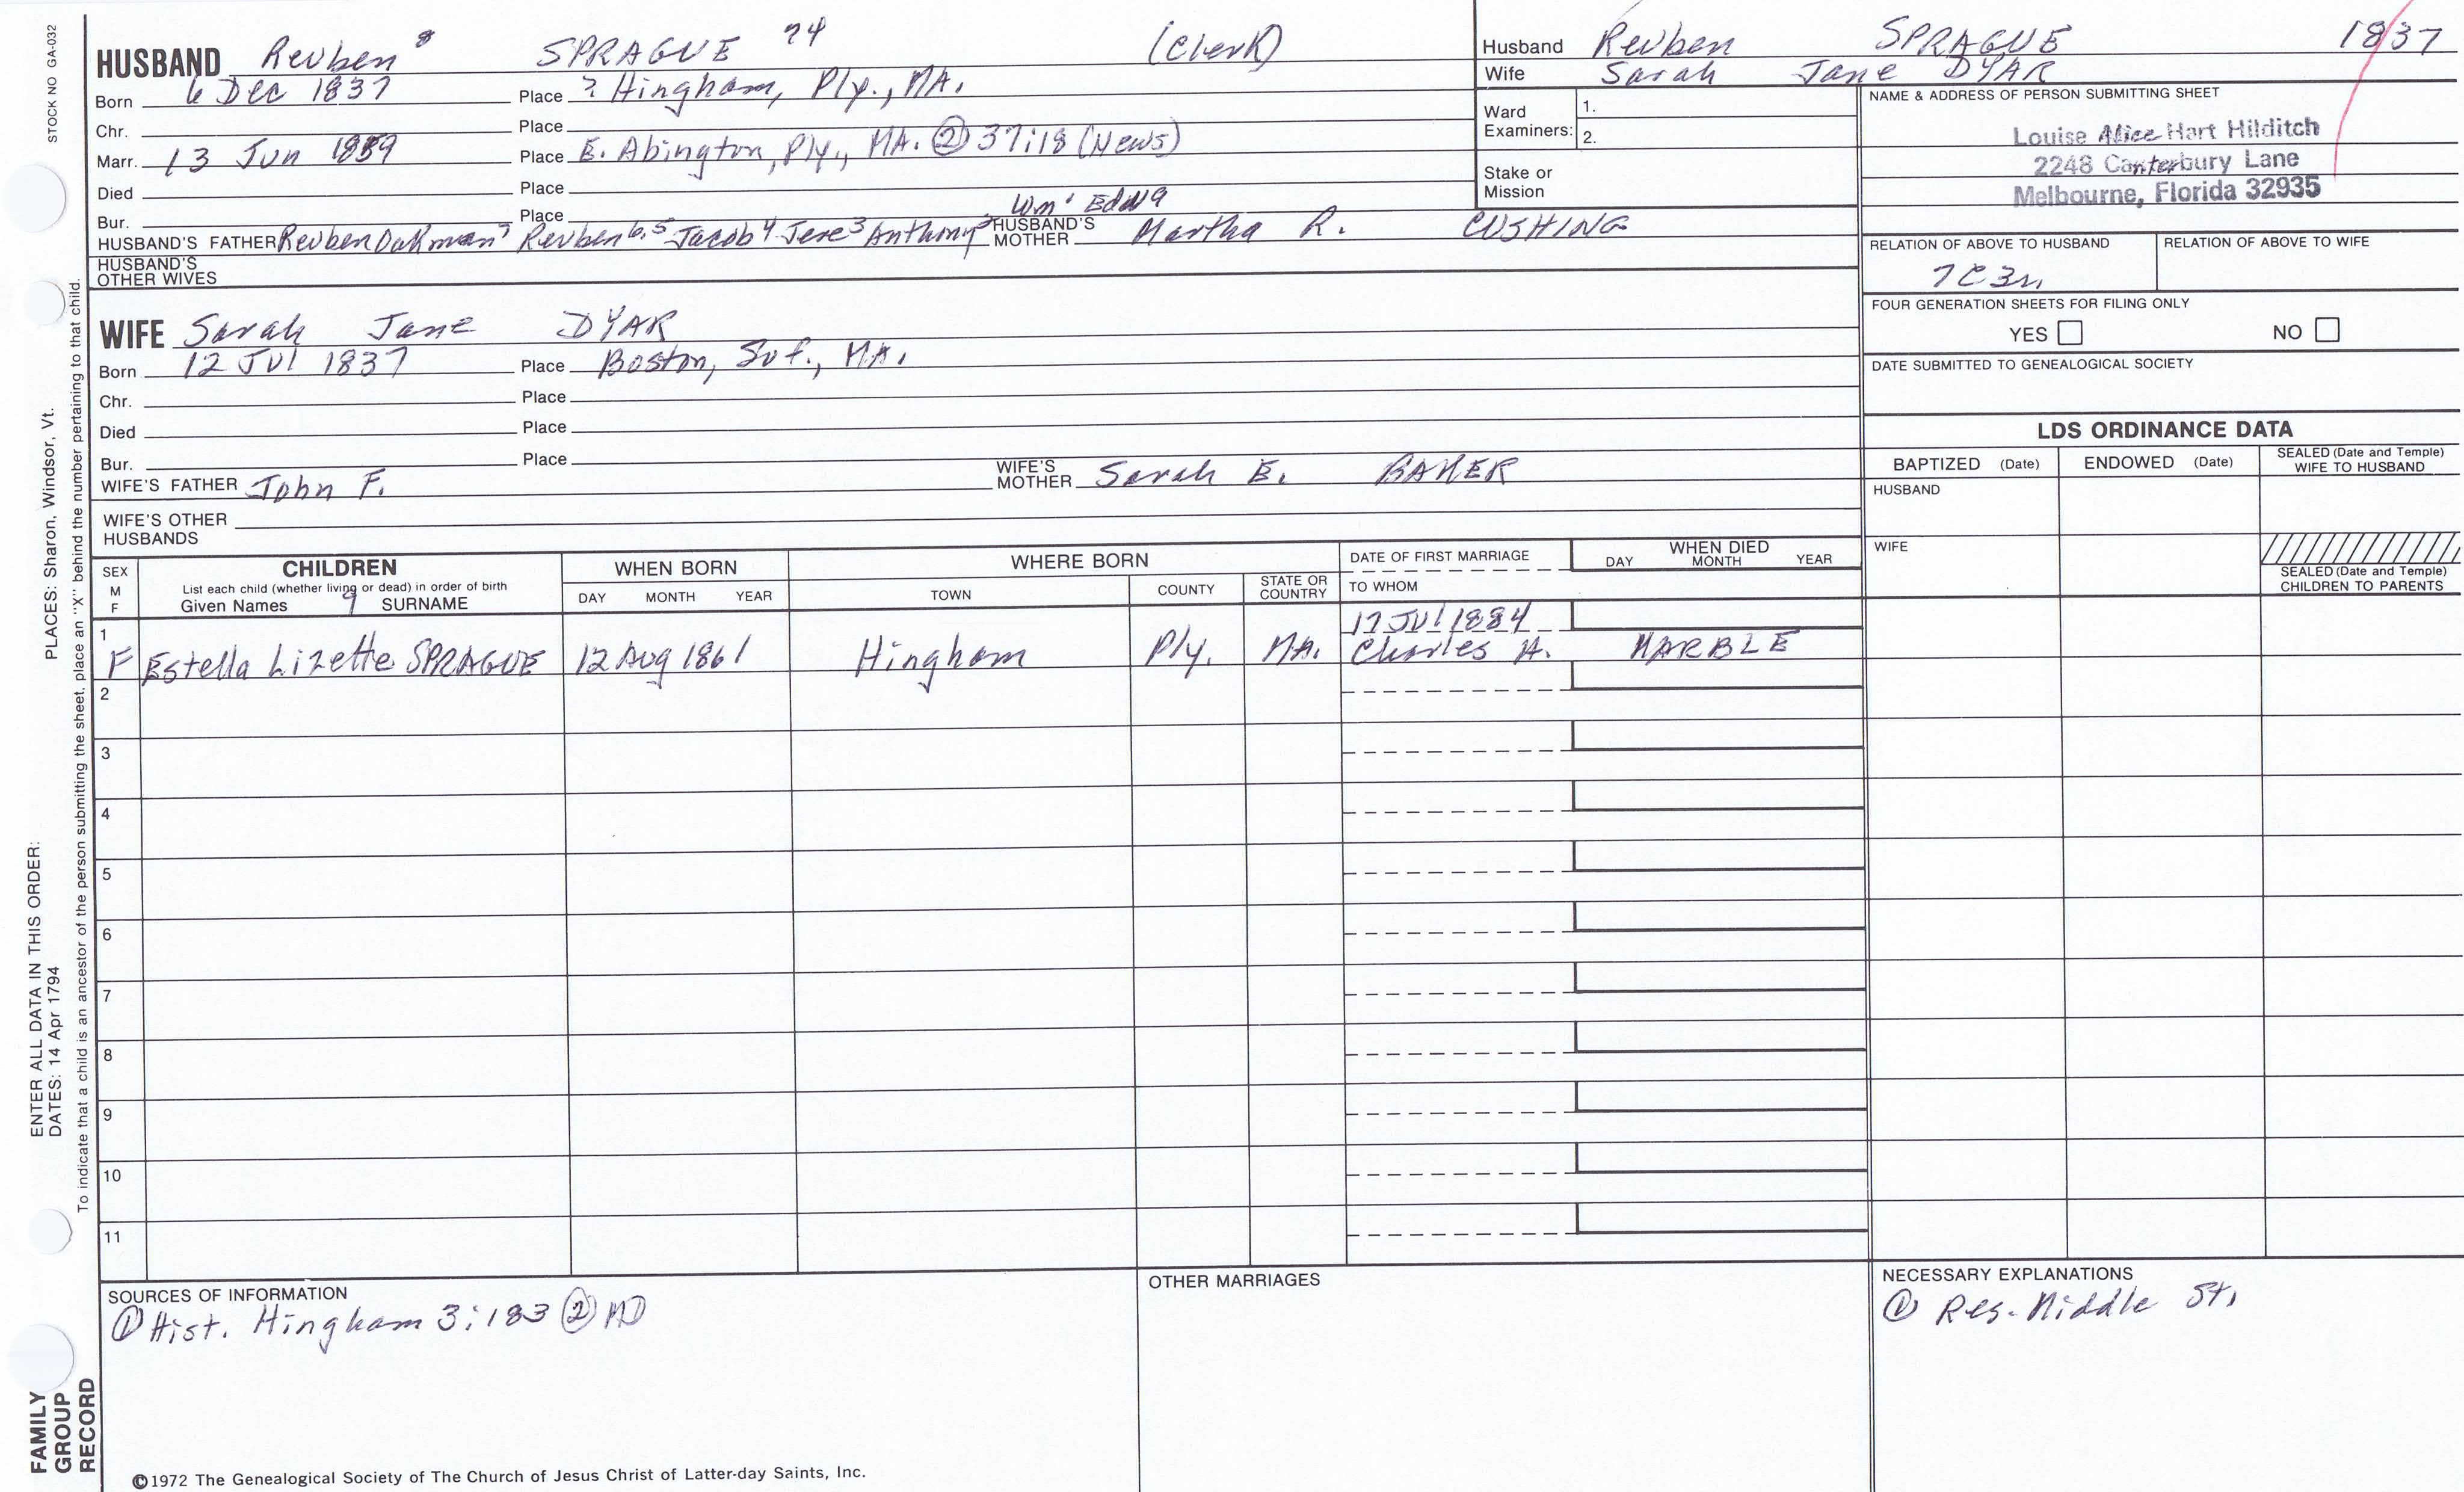 STOCK NO GA-032
PLACES: Sharon, Windsor, Vt.
ENTER ALL DATA IN THIS ORDER:
DATES: 14 Apr 1794
To indicate that a child is an ancestor of the person submitting the sheet, place an "X" behind the number pertaining to that child.
FAMILY
GROUP
RECORD
HUSBAND Reuben 8 SPRAGUE 74 (Clerk)
Born 6 Dec 1837 Place ? Hingham, Ply., MA.
Chr. Place
Marr. 13 Jun 1859 Place E. Abington, Ply., MA. ② 37:18 (News)
Died Place
Bur. Place
Wm' Edw9
HUSBAND'S FATHER Reuben Oakman 7 Reuben 6,5 Jacob 4 Jere 3 Anthony 2 HUSBAND'S MOTHER Martha R. CUSHING
HUSBAND'S
OTHER WIVES
WIFE Sarah Jane DYAR
Born 12 Jul 1837 Place Boston, Suf., MA.
Chr. Place
Died Place
Bur. Place
WIFE'S FATHER John F. WIFE'S MOTHER Sarah E. BAKER
WIFE'S OTHER
HUSBANDS
Husband Reuben SPRAGUE 1837
Wife Sarah Jane DYAR
Ward
Examiners:
1.
2.
Stake or
Mission
NAME & ADDRESS OF PERSON SUBMITTING SHEET
Louise Alice Hart Hilditch
2248 Canterbury Lane
Melbourne, Florida 32935
RELATION OF ABOVE TO HUSBAND RELATION OF ABOVE TO WIFE
7C3r.
FOUR GENERATION SHEETS FOR FILING ONLY
YES NO
DATE SUBMITTED TO GENEALOGICAL SOCIETY
LDS ORDINANCE DATA
BAPTIZED (Date) ENDOWED (Date) SEALED (Date and Temple)
WIFE TO HUSBAND
HUSBAND
WIFE
SEALED (Date and Temple)
CHILDREN TO PARENTS
SEX
M
F
CHILDREN
List each child (whether living or dead) in order of birth
Given Names 9 SURNAME
WHEN BORN
DAY MONTH YEAR
WHERE BORN
TOWN COUNTY STATE OR
COUNTRY
DATE OF FIRST MARRIAGE
TO WHOM
WHEN DIED
DAY MONTH YEAR
1
17 Jul 1884
F Estella Lizette SPRAGUE 12 Aug 1861 Hingham Ply. MA. Charles A. MARBLE
2
3
4
5
6
7
8
9
10
11
SOURCES OF INFORMATION
① Hist. Hingham 3:183 ② MD
OTHER MARRIAGES
NECESSARY EXPLANATIONS
① Res. Middle St.
©1972 The Genealogical Society of The Church of Jesus Christ of Latter-day Saints, Inc.